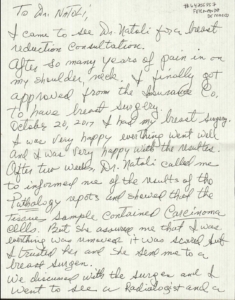 To Dr. Natoli,
I came to see Dr. Natoli for a breast
reduction consultation.
After so many years of pain in on
my shoulder, neck, & I finally got
approved from the Insurance Co.
To have breast surgery.
October 20, 2017 I had my breast surgery.
I was very happy everthing went well
and I was very happy with the results.
After two weeks, Dr. Natoli called me
to informed me of the results of the
Pathology reports and showed that the
tissue sample contained Carcinoma
cells. But she assured me that
everthing was removed it was scared but
I trusted her and she send me to a
breast surgeon.
We discussed with the surgeon and I
went to see a Radiologist and a